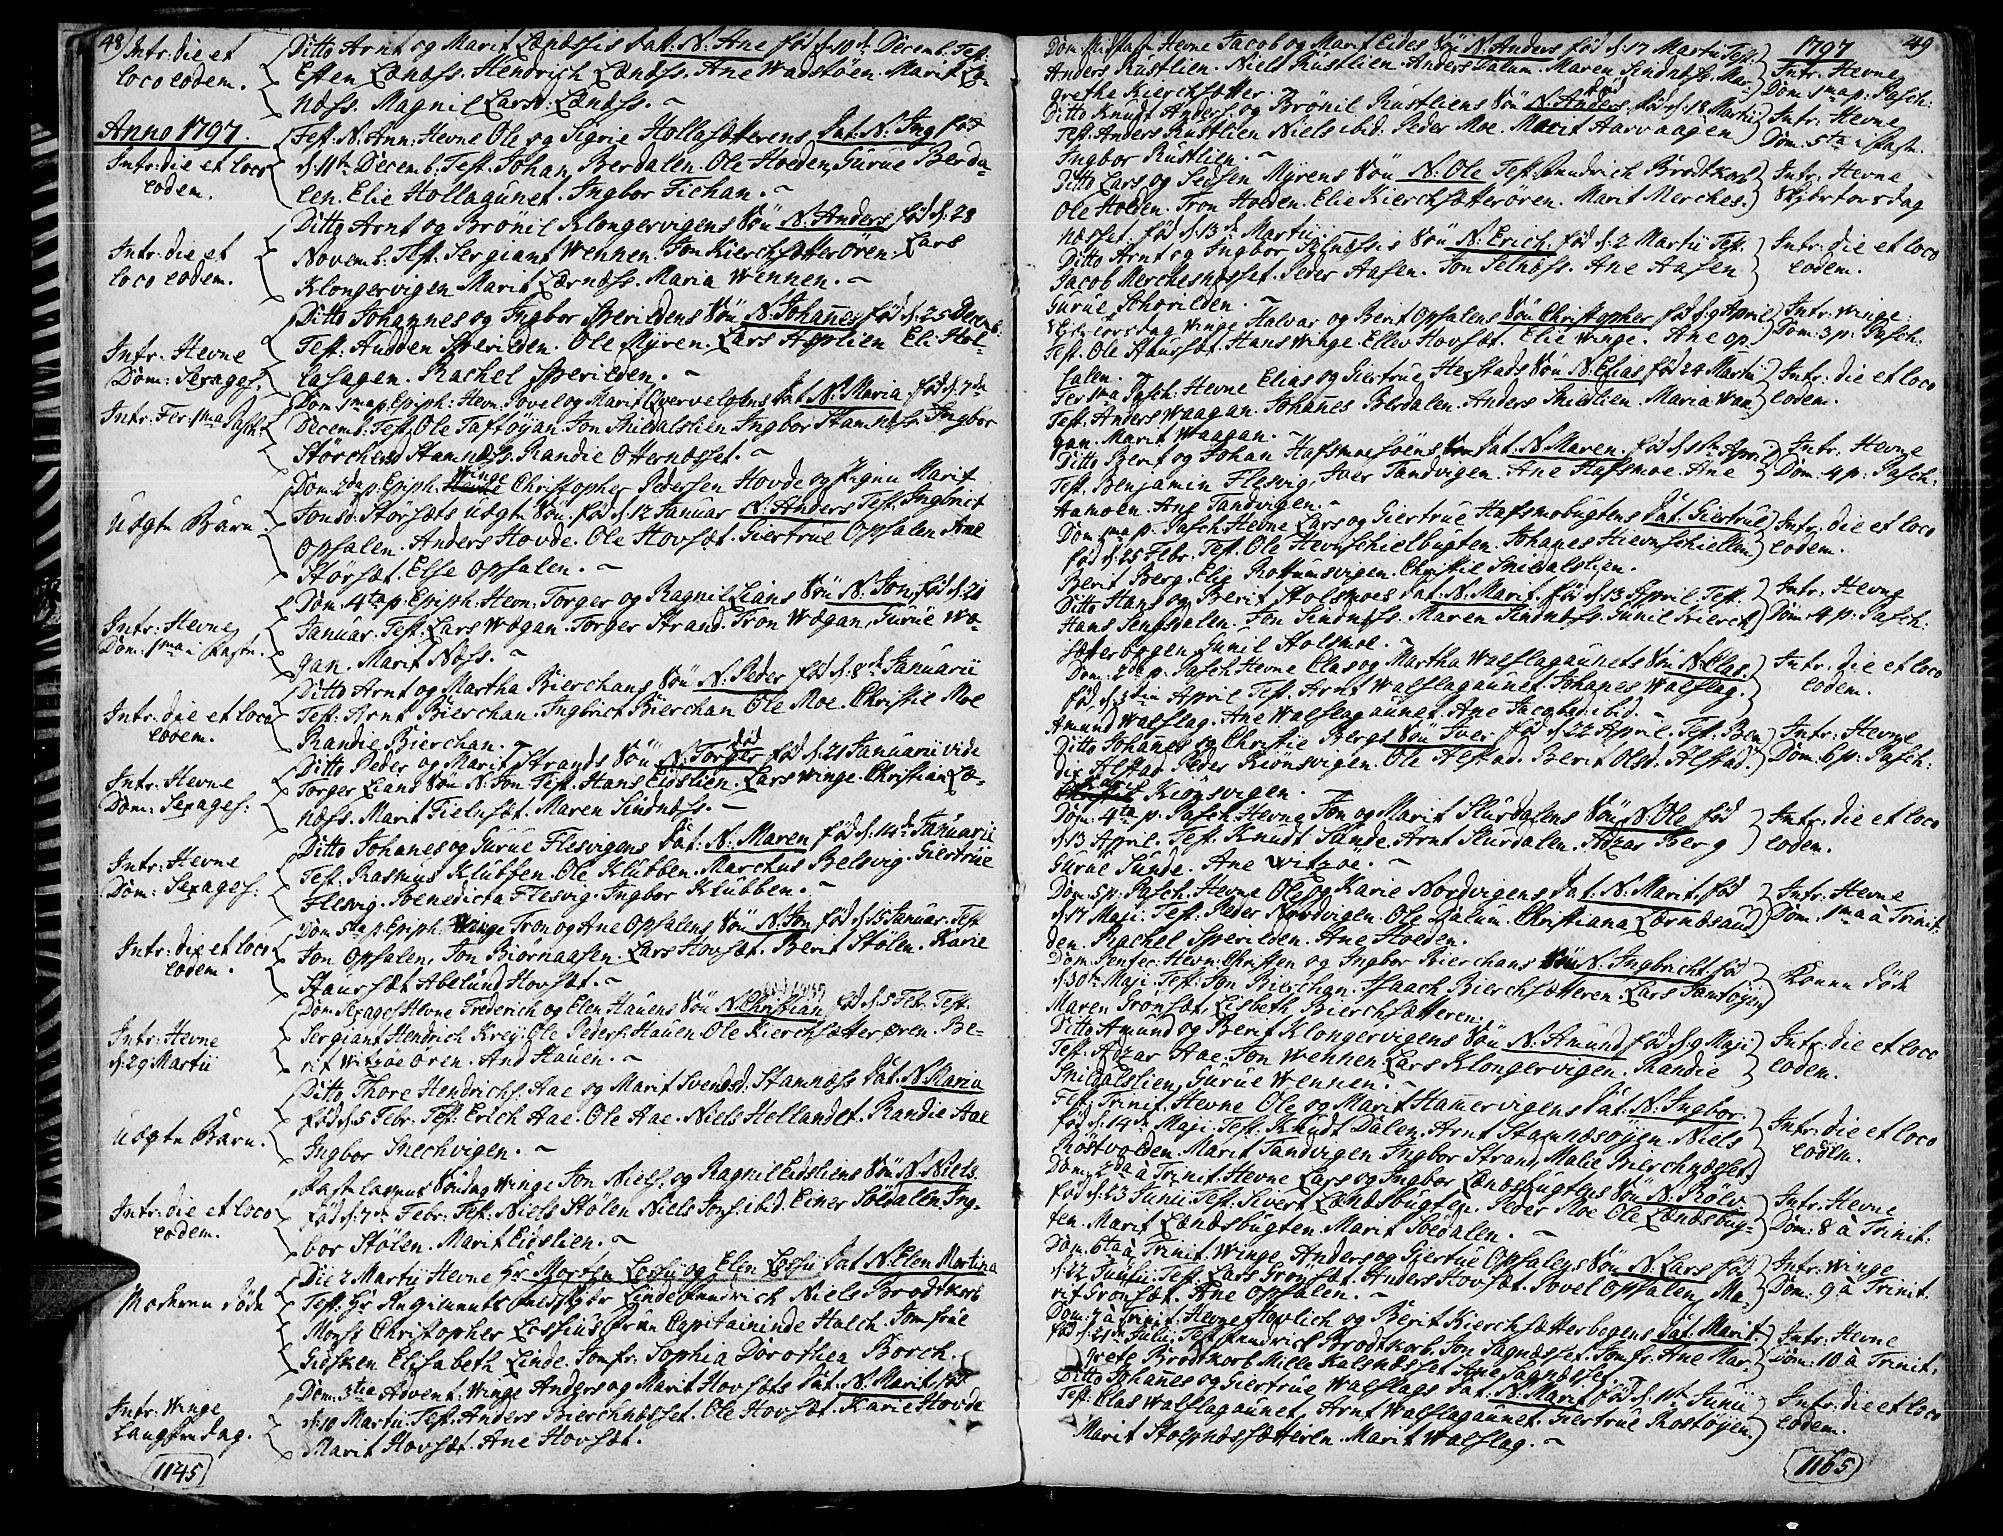 48
Intr: die et
loco eodem.
Ditto Arnt og Marit Lændsis Dat. N: Ane fød d: 10de Decemb. Test:
Esten Lændss. Hendrich Lændss. Ane Wadstöen. Marit Læ-
ndss. Magnil Larsd: Lændss.
Anno 1797.
Intr: die et loco
eodem.
Fest: N. Ann: Hevne Ole og Sigrie Hollasætterens Dat. N: Ing fød
d: 11te Decemb: Test: Johan Berdalen. Ole Hoeden, Gurue Berda-
len. Elie Hollagunet. Ingbor Fichan.
Intr: die et
loco eodem.
Ditto Arnt og Brönil Klongervigens Sön N: Anders fød d: 28
Novemb. Test: Sergiant Wennen. Jon Kierchsætterören. Lars
Klongervigen Marit Lærndss. Maria Wennen.
Intr: Hevne
Dom: Sexages.
Ditto Johannes og Ingbor Sperildens Sön N: Johanes fød d: 25 Decemb.
Test: Audden Sperilden. Ole Myren. Lars Asplien Eli Hol-
lasagen. Rachel Sperilden.
Intr: Fer: 1ma Pasch:
Dom 1ma p Epiph: Hevn: Povel og Marit Qvervelgens Dat N: Maria fød d: 7de
Decemb: Test: Ole Taftöyan. Jon Skildalslien Ingbor Stamndss. Ingbor
Störchersd Stamndss. Randie Otterndsset.
Uægte Barn.
Dom: 2da p. Epiph. Winge Christopher Pedersen Hovde og Pigen Marit
Jonsd: Storsæts uægte Sön fød d: 12 Januar N: Anders Test: Ingbrict
Opsalen. Anders Hovde. Ole Hovsæt. Giertrue Opsalen Ane
Störsæt. Else Opsalen.
Intr: Hevne
Dom: 1ma i Faste.
Dom. 4ta p. Epiph. Hevn: Torger og Ragnil Lians Sön N: Jon fød d: 21
Januar. Test. Lars Wægan. Torger Strand. Tron Wægan, Gurue Wæ-
gan. Marit Næss.
Intr: die et loco
eodem.
Ditto Arnt og Martha Bierchans Sön N: Peder fød d: 8de Januarii
Test: Arnt Bierchan. Ingbrict Bierchan Ole Moe. Christie Moe
Randie Bierchan.
Intr: Hevne
Dom: Sexages.
Ditto Peder og Marit Strands Sön N: Torger fød d: 21 Januarii vide
Torger Lians Sön N: Jon Test: Hans Eidslien. Lars Winge. Christian Læ-
ndss. Marit Fielnsöt. Maren Lindndss.
Intr: Hevne
Dom: Sexages.
Ditto Johanes og Gurue Flesvigens Dat: N: Maren fød d: 14de Januarii
Test: Rasmus Klubben. Ole Klubben. Marchus Belsvig. Giertrue
Flesvig. Benedicta Flesvig. Ingbor Klubben.
Intr: die et loco
eodem.
Dom 5ta p Epiph. Winge Tron og Ane Opsalens Sön N: Jon fød d: 15 Januar. Test
Jon Opsalen, Jon Biörnaasen. Lars Hovsæt. Berit Stölen. Karie
Staursæt Abelund Hovsæt.
Intr: Hevne
d: 29 Martii
Dom Sexages Hevne Frederich og Elen Hauens Sön N: Christian fød d: 5 Febr. Test.
Sergiant Hendrich Krey. Ole Peders: Hauen Ole Kierchsætterören. Be-
rit Witsöe ören. And Hauen.
Uægte Barn.
Ditto Thore Hendrichs. Aae og Marit Svendsd. Stamndss Dat. N. Maria
fød d: 5 Febr. Test: Erich Aae. Ole Aae. Niels Hellandet. Randie Aae
Ingbor Snechvigen.
Intr: die et loco
eodem.
Fastelavens Söndag Winge Jon Niels. og Ragnil Eidsliens Sön N. Niels
fød d: 7de Febr: Test: Niels Stölen Niels Jons. ibid. Einer Soldalen. Ing-
bor Stölen. Marit Eidslien.
Moderen död
Die 2 Martij Hevne Hr Morten Lossii og Elen Lossii Dat N. Elen Martina
Test: Hr Regiments Linde Fendrich Niels Brodtkorb
Mons. Christopher Lossius Frue Capitaininde Halch. Jomfrue
Giesken Elisabeth Linde. Jomfr: Sophia Dorothea Borch.
Intr: Winge
Langfredag.
Dom: 3tia Advent: Winge Anders og Marit Hovsæts Dat. N. Marit fød
d: 10 Martii Test: Anders Bierchndsset. Ole Hovsæt. Karie Hovde
Marit Hovsæt. Ane Hovsæt.
1145
1797
49
Dom: Midfast Hevne Jacob og Marit Eides Sön N. Anders fød d: 17 Martii Test.
Anders Rustlien. Niels Rustlien. Anders Dalum. Maren Lindndss. Mar-
grethe Kierchsætter.
Intr: Hevne
Dom: 1ma p: Pasch:
Ditto Knudt Anders. og Brönil Rustliens Sön N. Anders fød d: 18 Martii
Test: Anders Rustlien Niels ibid. Peder Moe. Marit Aarvaagen
Ingbor Rustlien.
Intr: Hevne
Dom: 5ta i Faste.
Ditto Lars og Myrens Sön N: Ole Test: Fendrich Brodtkorb
Ole Hoeden. Tron Hoeden. Elie Kierchsætterören. Marit Merches-
ndsset. fød d: 13de Martii
Intr: Hevne
Skjertorsdag
Ditto Arnt og Ingbor Selndssis Sön N. Erich fød d: 2 Martii Test.
Jacob Merchesndsset. Peder Aasen. Jon Selndss. Ane Aasen
Gurue Schorilden.
Intr: die et loco
eodem.
Skiertorsdag Winge Halvar og Berit Opsalens Sön Christopher fød d: 9 April
Test. Ole Staursæt. Hans Winge. Ellev Hovsæt. Elie Winge. Ane Op-
salen.
Intr: Winge:
Dom: 3 p: Pasch.
Fer 1ma Pasch: Hevne Elias og Giertrue Hegstads Sön N. Elias fød 24 Martii
Test: Anders Waagan. Johanes Berdalen. Anders Skieslien. Maria Waa-
gan. Marit Waagan.
Intr: die et loco
eodem.
Ditto Berit og Johan Hafsmoesöens Dat. N. Maren fød d: 1te April
Test. Benjamin Flesvig. Iver Tandvigen. Ane Hafsmoe. Ane
Hamoen. Ane Tandvigen.
Intr: Hevne
Dom: 4 p: Pasch:
Dom 1ma p. Pasch: Hevne Lars og Giertrue Hafsmobugtens Dat. Giertrue
fød d: 25 Febr. Test. Ole Hevnschielbugten. Johanes Hievnschiellen
Berit Berg. Elie Rottumsvigen. Christie Snildalslien.
Intr: die et loco
eodem.
Ditto Hans og Berit Stolsmoes Dat. N: Marit. fød d: 13 April Test.
Hans Lengsdalen. Jon Lindndss. Maren Lindndss. Gunil Kierch
sætterbogen Gunil Holsmoe.
Intr: Hevne
Dom: 4 p: Pasch:
Dom: 2da p. Pasch Hevne Clas og Martha Walslagaunets Sön N: Clas
fød d: 3tia April Test. Arnt Walslagaunet. Johanes Walslag.
Amund Walslag. Ane Walslagaunet. Ane Jacobsd ibid.
Intr: die et loco
eodem.
Ditto Johanes og Christie Bergs Sön Iver fød d: 22 April. Test. Ben
dix Alstad Peder Kiönsvigen. Ole Alstad. Berit Olsd. Alstad.
Kiönsvigen.
Intr: Hevne
Dom: 6 p: Pasch:
Dom: 4ta p. Pasch Hevne Jon og Marit Slurdalens Sön N. Ole fød
d: 13 April. Test: Knudt Sunde. Arnt Slurdalen. Adzar Berg
Gurue Sunde. Ane Witzoe.
Intr: die et loco
eodem.
Dom: 5 p: Pasch: Hevne Ole og Karie Nordvigens Dat. N: Marit. fød
d: 17 Maji. Test: Peder Nordvigen. Ole Dalum. Christiana Lærndsaun
den. Rachel Sperilden. Ane Hoeden.
Intr: Hevne
Dom. 1ma à Trinit:
Dom: Pentec: Hevn: Christen og Ingbor Bierchans Sön N. Ingbricht fød
d: 30te Maji. Test: Jon Bierchan. Isaach Bierchsætteren. Lars Tandöyen
Maren Tronsæt. Lisbeth Bierchsætteren.
Konen död
Ditto Amund og Berit Klongervigens Sön N. Amund fød d: 9 Maji
Test: Adzar Aae. Jon Wennen Lars Klongervigen. Randie
Snildalslien, Gurue Wennen.
Intr: die et loco
eodem.
Fest: Trinit. Hevne Ole og Marit Hamervigens Dat. N: Ingbor
fød d: 14de Maji. Test: Knudt Dalen. Arnt Stamndsöyen. Niels
Röstvolden. Marit Tandvigen Ingbor Strand Malie Bierchndslet.
Intr: die et loco
eodem.
Dom: 2da à Trinit. Hevne Lars og Ingbor Lændsbugtens Sön N: Rölv
fød d: 13 Junii Test: Sivert Lændsbugten. Peder Moe Ole Lændsbug-
ten. Marit Lændsbugten. Marit Soedalen.
Intr: Hevne
Dom: 8 à Trinit:
Dom: 6ta à Trinit: Winge Anders og Giertue Opsalens Sön N: Lars fød
d: 22 Julii. Test. Lars Grönsæt. Anders Hovsæt. Povel Opsalen, Ma-
rit Tronsæt. Ane Opsalen.
Intr: Winge
Dom: 9 à Trinit.
Dom: 7 à Trinit. Hevne og Berit Kierchsætterbogens Dat. Marit.
fød d: 21de Julii: Test Fendrich Brodtkorb. Jon Sagndsset. Jomfr: Ane Mar-
grete Brodtkorb Mille Kalsndsset Ane Sagndsset.
Intr: Hevne
Dom: 10 à Trinit:
Ditto Johanes og Giertrue Walslags Dat. N: Marit fød d: 1te Junii
Test. Clas Walslagaunet, Arnt Walslagaunet. Giertrue Rostöyen.
Marit Stolpndssætteren. Marit Walslag.
Intr: die et loco
eodem.
1165